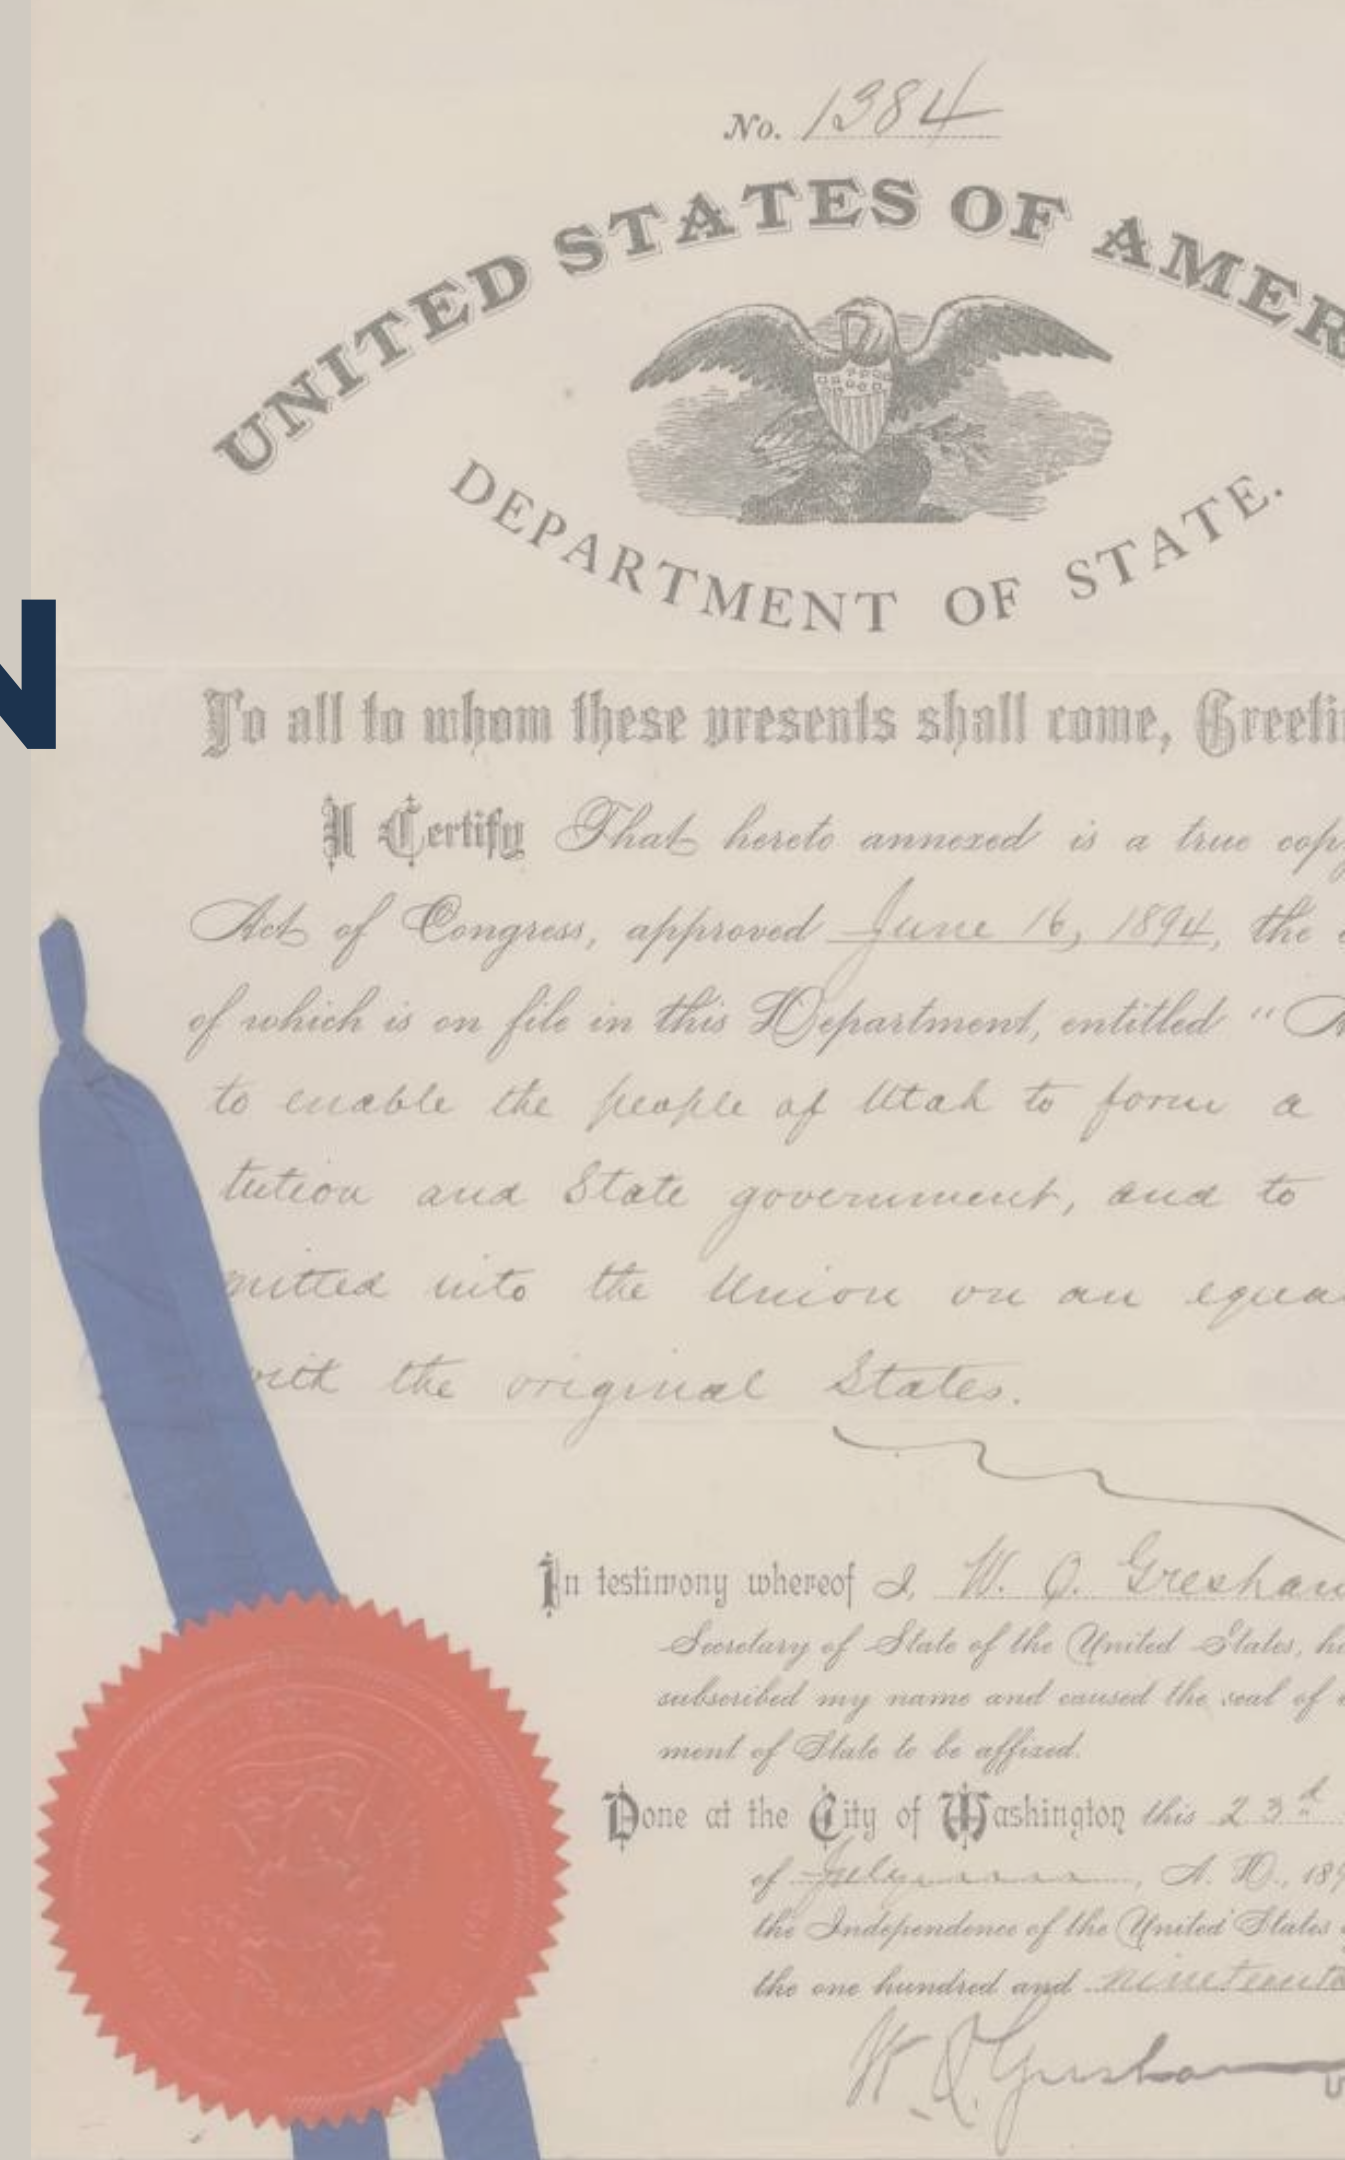 No. 1384
UNITED STATES OF AMER
DEPARTMENT OF STATE.
N
To all to whom these presents shall come, Greeti
I Certify That hereto annexed is a true cop
Act of Congress, approved June 16, 1894, the
of which is on file in this Department, entitled "A
to enable the people of Utah to form a
tution and State government, and to
mitted into the Union on an equa
with the original States.
In testimony whereof I, W. Q. Gresham
Secretary of State of the United States, h
subscribed my name and caused the seal of
ment of State to be affixed.
Done at the City of Washington this 23d
of July, A. D., 189
the Independence of the United States
the one hundred and nineteent
W Q Gresham